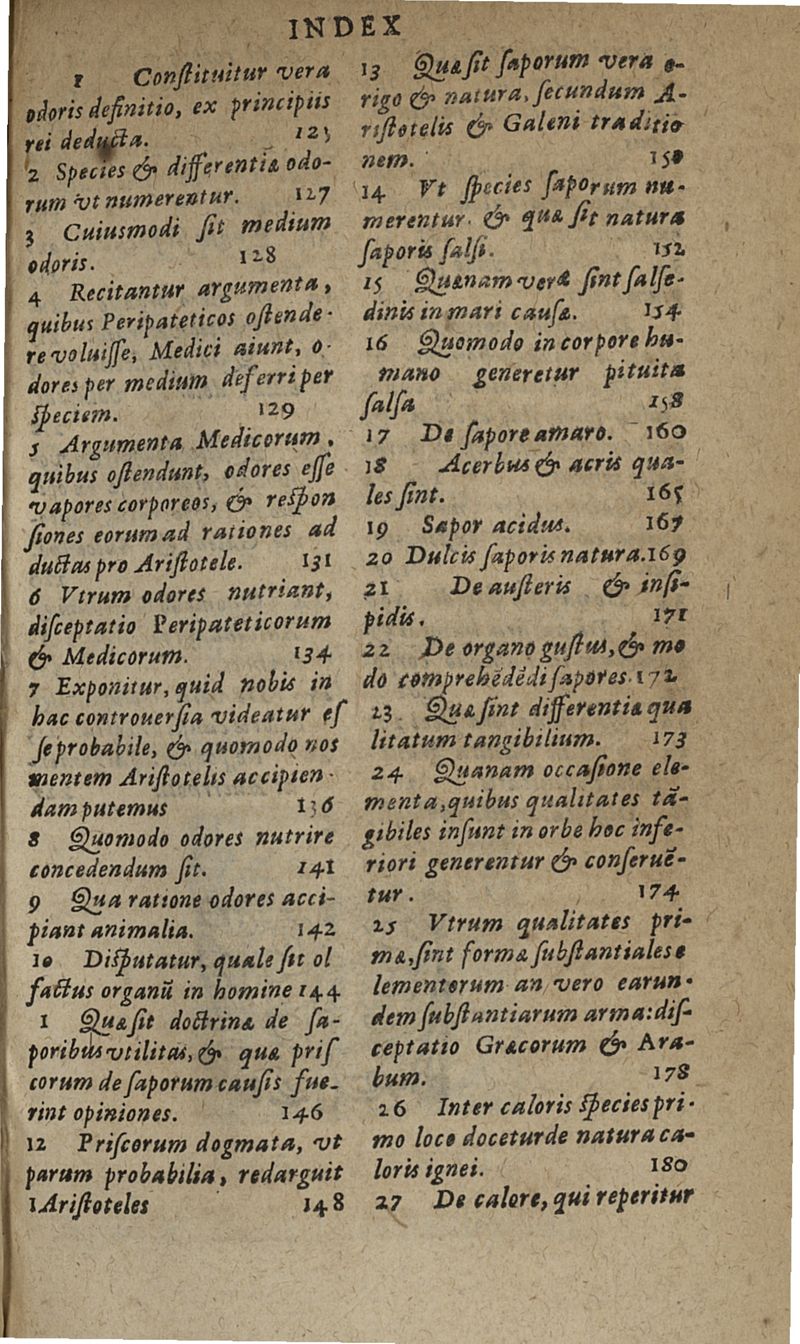 INDEX
1 Conſtituitur vera
odoris definitio, ex principiis
rei deducta. 125
2 Species & differentiæ odo-
rum vt numerentur. 127
3 Cuiusmodi ſit medium
odoris. 128
4 Recitantur argumenta,
quibus Peripateticos oſtende-
re voluiſſe, Medici aiunt, o-
dores per medium deferri per
ſpeciem. 129
5 Argumenta Medicorum,
quibus oſtendunt, odores eſſe
vapores corporeos, & reſpon
ſiones eorum ad rationes ad
ductas pro Ariſtotele. 131
6 Vtrum odores nutriant,
diſceptatio Peripateticorum
& Medicorum. 134
7 Exponitur, quid nobis in
hac controuerſia videatur eſ
ſe probabile, & quomodo nos
mentem Ariſtotelis accipien-
dam putemus 136
8 Quomodo odores nutrire
concedendum ſit. 141
9 Qua ratione odores acci-
piant animalia. 142
10 Diſputatur, quale ſit ol
factus organū in homine 144
1 Quæ ſit doctrinæ de ſa-
poribus vtilitas, & quæ priſ
corum de ſaporum cauſis fue-
rint opiniones. 146
12 Priſcorum dogmata, vt
parum probabilia, redarguit
1Ariſtoteles 148
13 Quæ ſit ſaporum vera o-
rigo & natura, ſecundum A-
riſtotelis & Galeni traditio
nem. 150
14 Vt ſpecies ſaporum nu-
merentur. & quæ ſit natura
ſaporis ſalſi. 152
15 Quænam veræ ſint ſalſe-
dinis in mari cauſæ. 154
16 Quomodo in corpore hu-
mano generetur pituita
ſalſa 158
17 De ſapore amaro. 160
18 Acerbus & acris qua-
les ſint. 165
19 Sapor acidus. 167
20 Dulcis ſaporis natura. 169
21 De auſteris & inſi-
pidis. 171
22 De organo guſtus, & mo
do comprehēdēdi ſapores. 172
23 Quæ ſint differentiæ qua
litatum tangibilium. 173
24 Quanam occaſione ele-
menta, quibus qualitates tā-
gibiles inſunt in orbe hoc infe-
riori generentur & conſeruē-
tur. 174
25 Vtrum qualitates pri-
mæ, ſint formæ ſubſtantiales e
lementorum an vero earun-
dem ſubſtantiarum arma: diſ-
ceptatio Græcorum & Ara-
bum. 178
26 Inter caloris ſpecies pri-
mo loco docetur de natura ca-
loris ignei. 180
27 De calore, qui reperitur